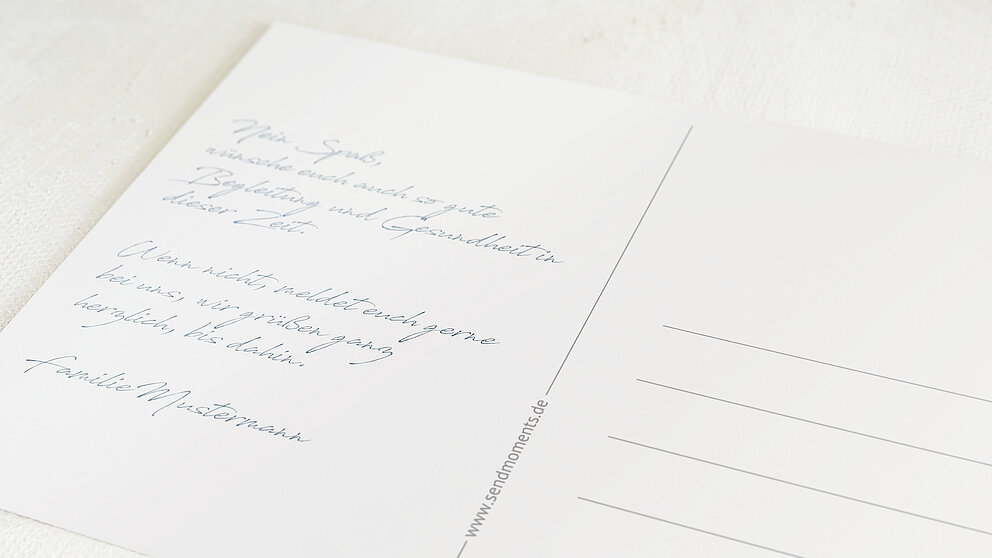 Nein Spaß,
wünsche euch auch so gute
Begleitung und Gesundheit in
dieser Zeit.
Wenn nicht, meldet euch gerne
bei uns, wir grüßen ganz
herzlich, bis dahin.
Familie Mustermann
www.sendmoments.de